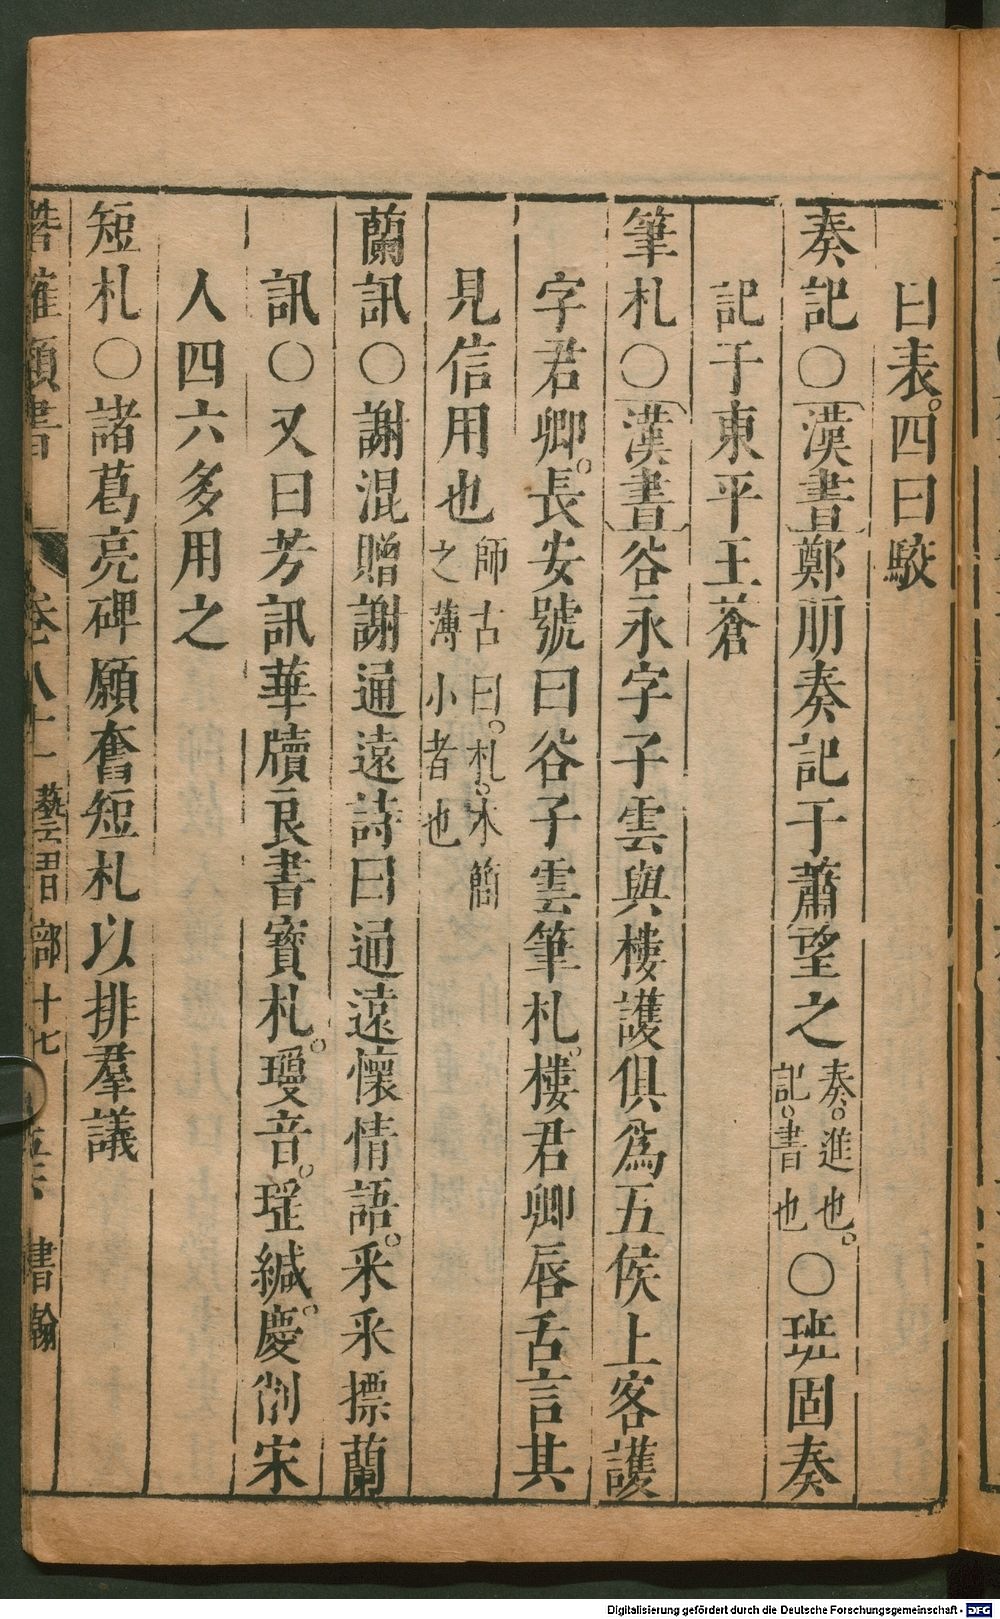 曰表四曰駮
奏記〇漢書鄭朋奏記于蕭望之奏進也記書也〇班固奏
記于東平王蒼
筆札〇漢書谷永字子雲與樓護俱爲五侯上客護
字君卿長安號曰谷子雲筆札樓君卿唇舌言其
見信用也師古曰札木簡之薄小者也
蘭訊〇謝混贈謝通遠詩曰通遠懷情語釆釆摽蘭
訊〇又曰芳訊華牘良書寳札瓊音瑶緘慶削宋
人四六多用之
短札〇諸葛亮碑願奮短札以排羣議
卷八十一 藝習部十七 書翰
Digitalisierung gefördert durch die Deutsche Forschungsgemeinschaft - DFG